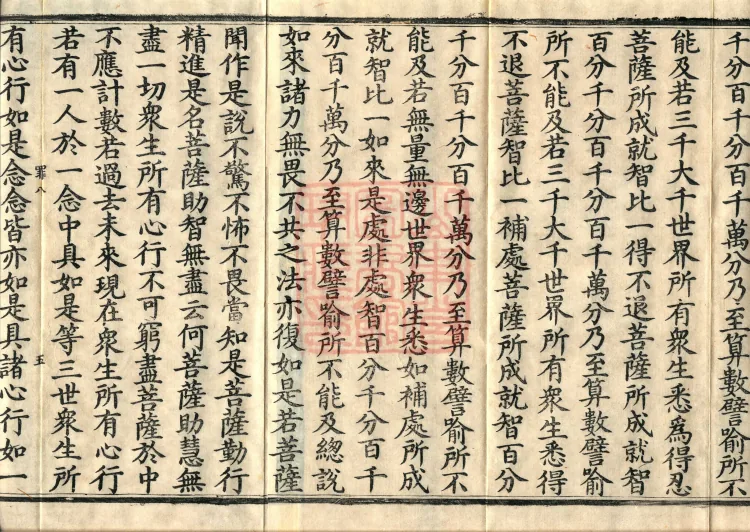 千分百千分百千萬分乃至算數譬喻所不
能及若三千大千世界所有衆生悉爲得忍
菩薩所成就智比一得不退菩薩所成就智
百分千分百千分百千萬分乃至算數譬喻
所不能及若三千大千世界所有衆生悉得
不退菩薩智比一補處菩薩所成就智百分
千分百千分百千萬分乃至算數譬喻所不
能及若無量無邊世界衆生悉如補處所成
就智比一如來是處非處智百分千分百千
分百千萬分乃至算數譬喻所不能及緫說
如來諸力無畏不共之法亦復如是若菩薩
聞作是說不驚不怖不畏當知是菩薩勤行
精進是名菩薩助智無盡云何菩薩助慧無
盡一切衆生所有心行不可窮盡菩薩於中
不應計數若過去未來現在衆生所有心行
若有一人於一念中具如是等三世衆生所
罪八 五
有心行如是念念皆亦如是具諸心行如一